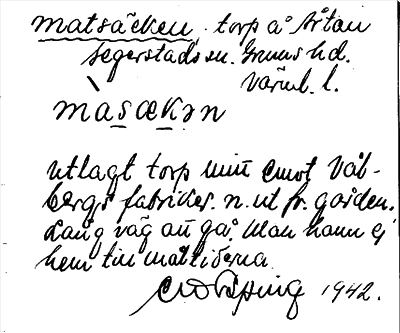 matsäcken torp å Årtan
Segerstads sn. Grums hd.
Värml. l.
màsækən
utlagt torp mitt emot Vål-
bergs fabriker. n. ut fr. gården.
Lång väg att gå. Man hann ej
hem till måltiderna
1942.